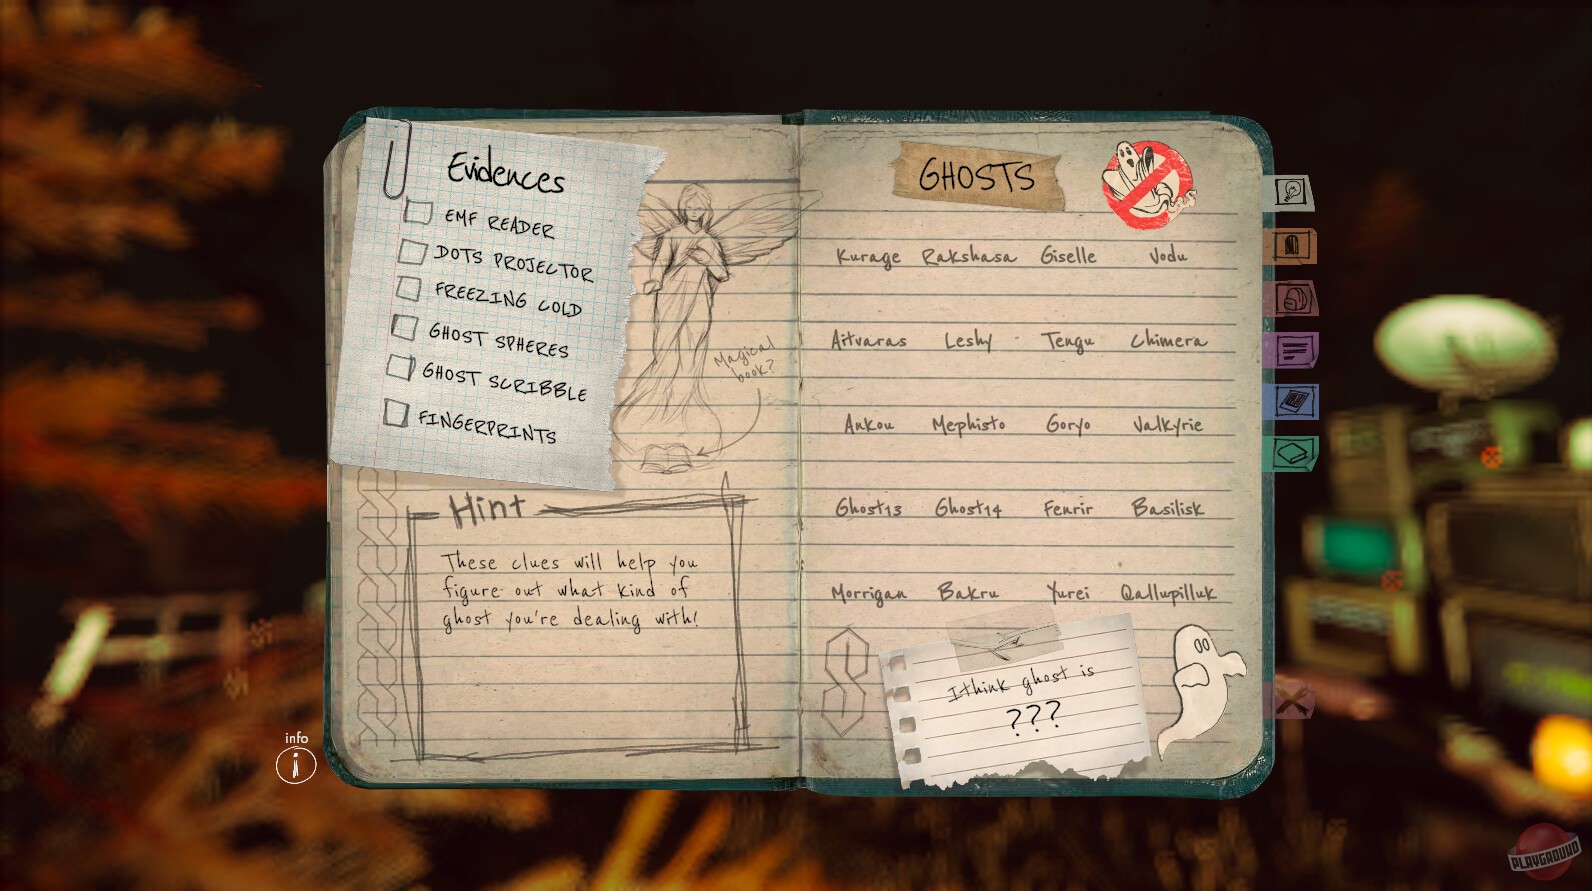 Evidences
EMF READER
DOTS PROJECTOR
FREEZING COLD
GHOST SPHERES
GHOST SCRIBBLE
FINGERPRINTS
Magical
book?
Hint
These clues will help you
figure out what kind of
ghost you're dealing with!
info
i
GHOSTS
Kurage Rakshasa Giselle Vodu
Aitvaras Leshy Tengu Chimera
Ankou Mephisto Goryo Valkyrie
Ghost13 Ghost14 Fenrir Basilisk
Morrigan Bakru Yurei Qallupilluk
I think ghost is
???
PLAYGROUND